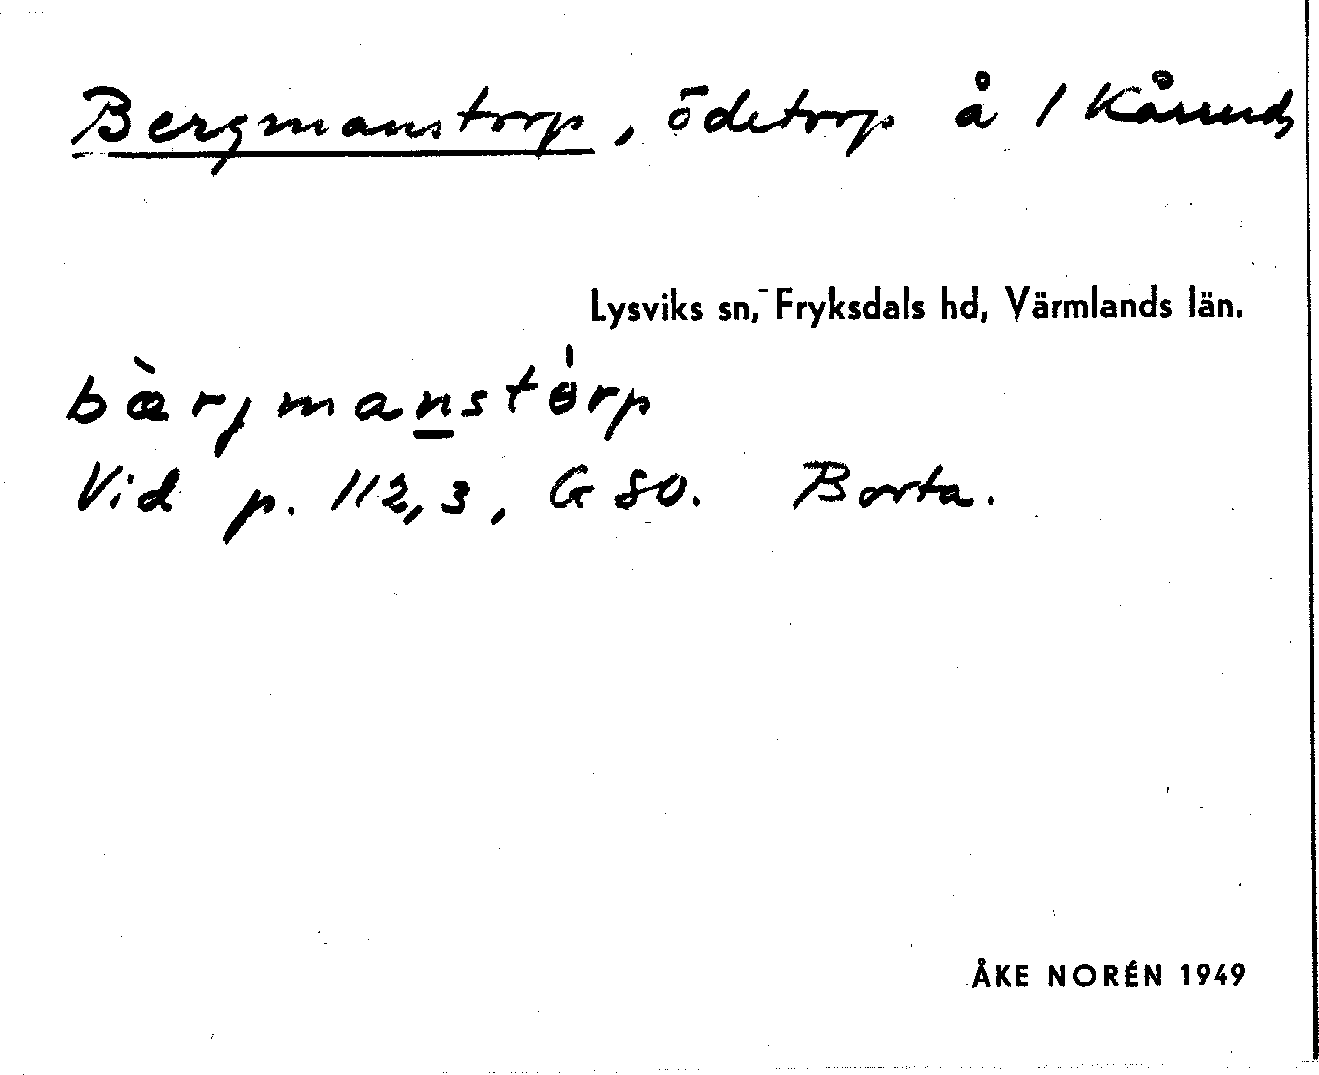 Bergmanstorp, ödetorp å 1 Kårrud
Lysviks sn, Fryksdals hd, Värmlands län.
bæ̀rjmanstɵ́rp
Vid p. 112,3, G 80. Borta.
ÅKE NORÉN 1949